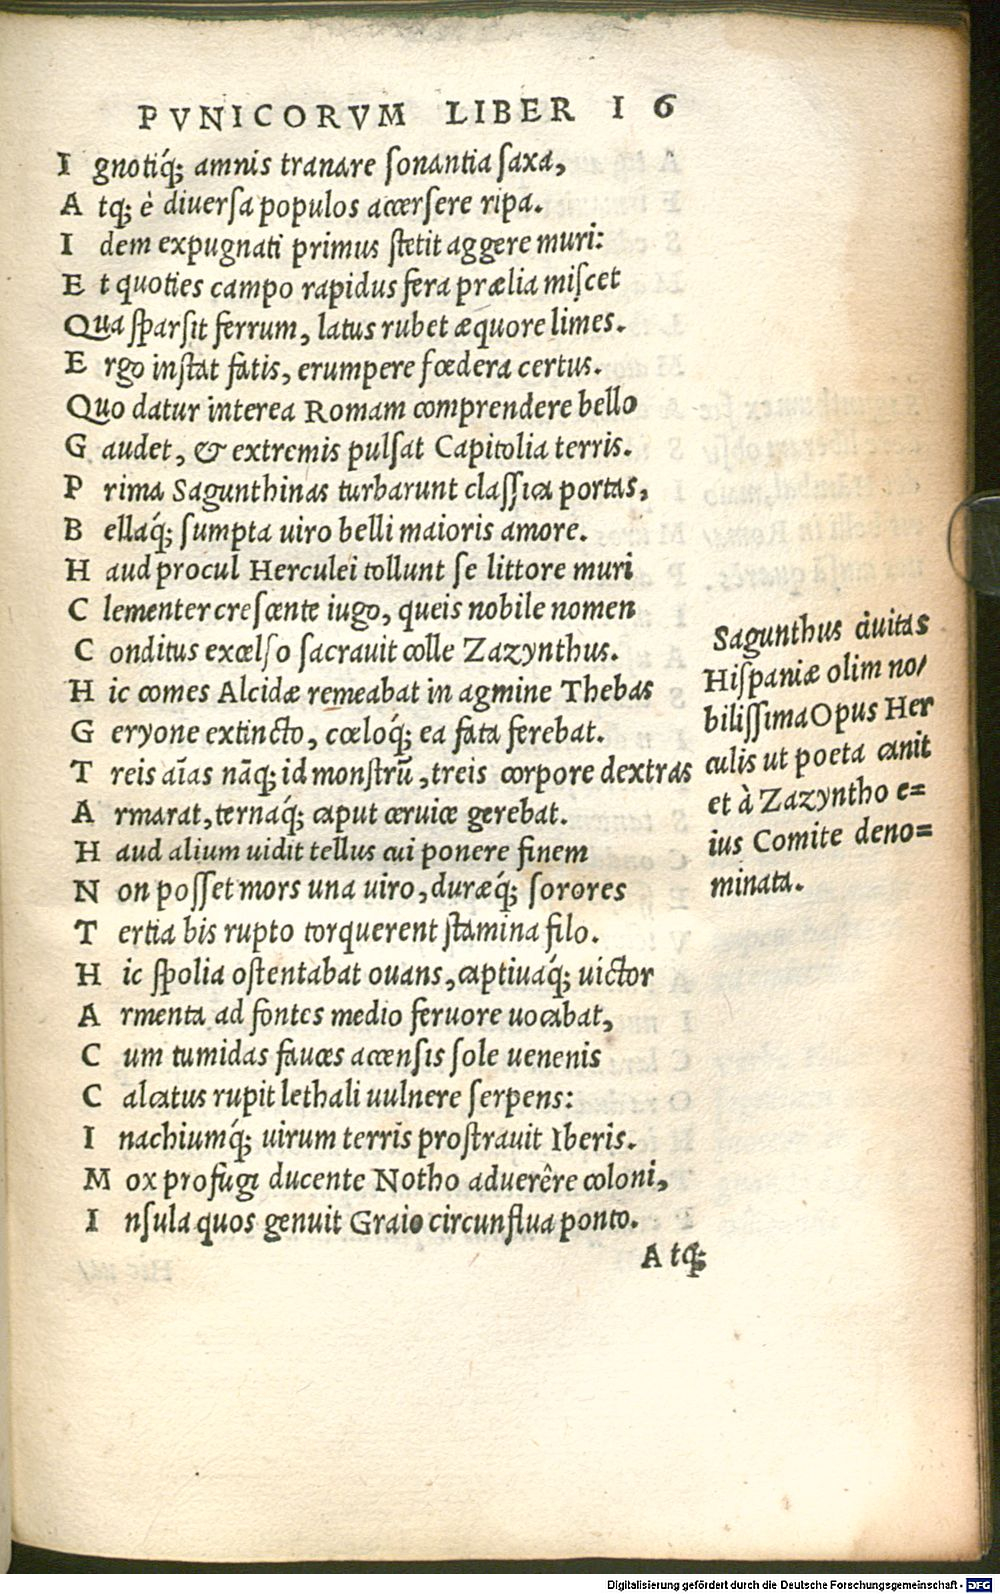 PVNICORVM LIBER I 6
I gnotiq́; amnis tranare ſonantia ſaxa,
A tq; è diuerſa populos accerſere ripa.
I dem expugnati primus ſtetit aggere muri:
E t quoties campo rapidus fera prælia miſcet
Qua ſparſit ferrum, latus rubet æquore limes.
E rgo inſtat fatis, erumpere fœdera certus.
Quo datur interea Romam comprendere bello
G audet, & extremis pulſat Capitolia terris.
P rima Sagunthinas turbarunt claſſica portas,
B ellaq́; ſumpta uiro belli maioris amore.
H aud procul Herculei tollunt ſe littore muri
C lementer creſcente iugo, queis nobile nomen
C onditus excelſo sacrauit colle Zazynthus.
H ic comes Alcidæ remeabat in agmine Thebas
G eryone extincto, cœloq́; ea fata ferebat.
T reis aīas nāq; id monſtrū, treis corpore dextras
A rmarat, ternaq́; caput ceruice gerebat.
H aud alium uidit tellus cui ponere finem
N on poſſet mors una uiro, duræq́; sorores
T ertia bis rupto torquerent ſtamina filo.
H ic ſpolia oſtentabat ouans, captiuaq́; uictor
A rmenta ad fontes medio feruore uocabat,
C um tumidas fauces accenſis ſole uenenis
C alcatus rupit lethali uulnere ſerpens:
I nachiumq́; uirum terris proſtrauit Iberis.
M ox profugi ducente Notho aduerêre coloni,
I nſula quos genuit Graio circunflua ponto.
A tq;
Sagunthus ciuitas
Hiſpaniæ olim no/
biliſſima Opus Her
culis ut poeta canit
et à Zazyntho e=
ius Comite deno=
minata.
Digitalisierung gefördert durch die Deutsche Forschungsgemeinschaft - DFG